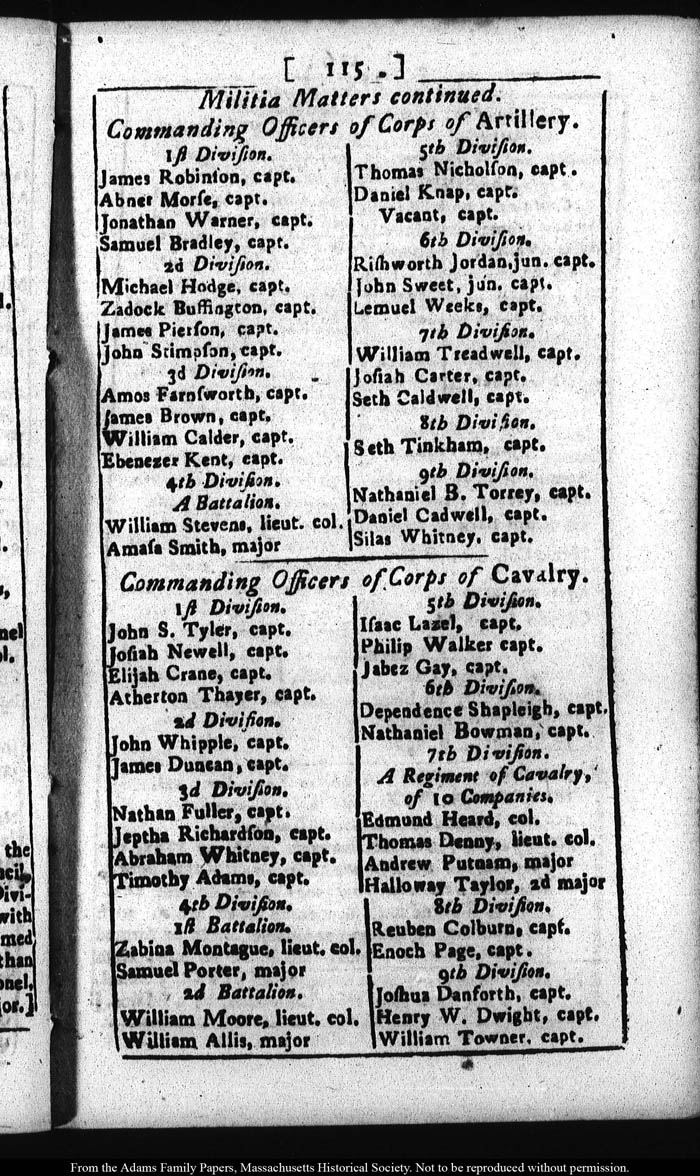 [ 115 . ]
Militia Matters continued.
Commanding Officers of Corps of Artillery.
1ſt Diviſion.
James Robinſon, capt.
Abner Morſe, capt.
Jonathan Warner, capt.
Samuel Bradley, capt.
2d Diviſion.
Michael Hodge, capt.
Zadock Buffington, capt.
James Pierſon, capt.
John Stimpſon, capt.
3d Diviſion.
Amos Farnſworth, capt.
James Brown, capt.
William Calder, capt.
Ebenezer Kent, capt.
4th Diviſion.
A Battalion.
William Stevens, lieut. col.
Amaſa Smith, major
5th Diviſion.
Thomas Nicholſon, capt.
Daniel Knap, capt.
Vacant, capt.
6th Diviſion.
Riſhworth Jordan, jun. capt.
John Sweet, jun. capt.
Lemuel Weeks, capt.
7th Diviſion.
William Treadwell, capt.
Joſiah Carter, capt.
Seth Caldwell, capt.
8th Diviſion.
Seth Tinkham, capt.
9th Diviſion.
Nathaniel B. Torrey, capt.
Daniel Cadwell, capt.
Silas Whitney, capt.
Commanding Officers of Corps of Cavalry.
1ſt Diviſion.
John S. Tyler, capt.
Joſiah Newell, capt.
Elijah Crane, capt.
Atherton Thayer, capt.
2d Diviſion.
John Whipple, capt.
James Duncan, capt.
3d Diviſion.
Nathan Fuller, capt.
Jeptha Richardſon, capt.
Abraham Whitney, capt.
Timothy Adams, capt.
4th Diviſion.
1ſt Battalion.
Zabina Montague, lieut. col.
Samuel Porter, major
2d Battalion.
William Moore, lieut. col.
William Allis, major
5th Diviſion.
Iſaac Lazel, capt.
Philip Walker capt.
Jabez Gay, capt.
6th Diviſion.
Dependence Shapleigh, capt.
Nathaniel Bowman, capt.
7th Diviſion.
A Regiment of Cavalry,
of 10 Companies.
Edmund Heard, col.
Thomas Denny, lieut. col.
Andrew Putnam, major
Halloway Taylor, 2d major
8th Diviſion.
Reuben Colburn, capt.
Enoch Page, capt.
9th Diviſion.
Joſhua Danforth, capt.
Henry W. Dwight, capt.
William Towner, capt.
the
with
than
From the Adams Family Papers, Massachusetts Historical Society. Not to be reproduced without permission.